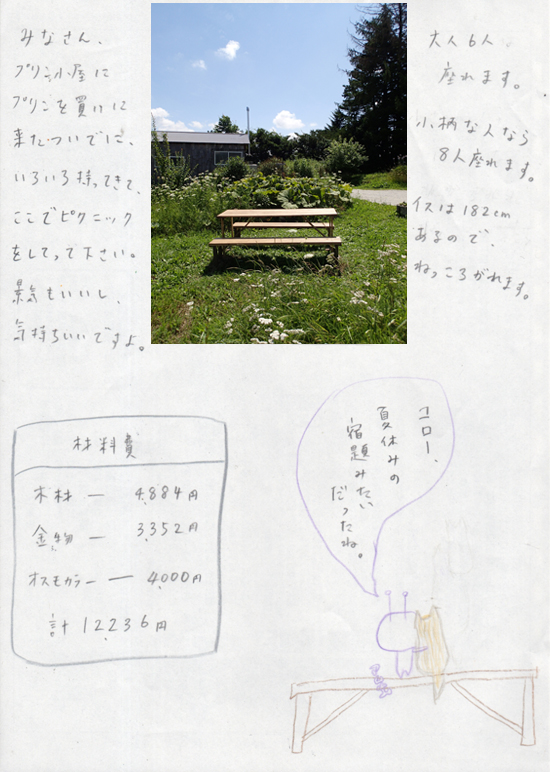 みなさん、
プリン小屋に
プリンを買いに
来たついでに、
いろいろ持ってきて、
ここでピクニック
をしてって下さい。
景気もいいし、
気持ちいいですよ。
大人6人、
座れます。
小柄な人なら
8人座れます。
イスは182cm
あるので、
ねっころがれます。
材料費
木材 ー 4,884円
金物 ー 3,352円
オスモカラー ー 4,000円
計 12,236円
コロー、
夏休みの
宿題みたい
だったね。